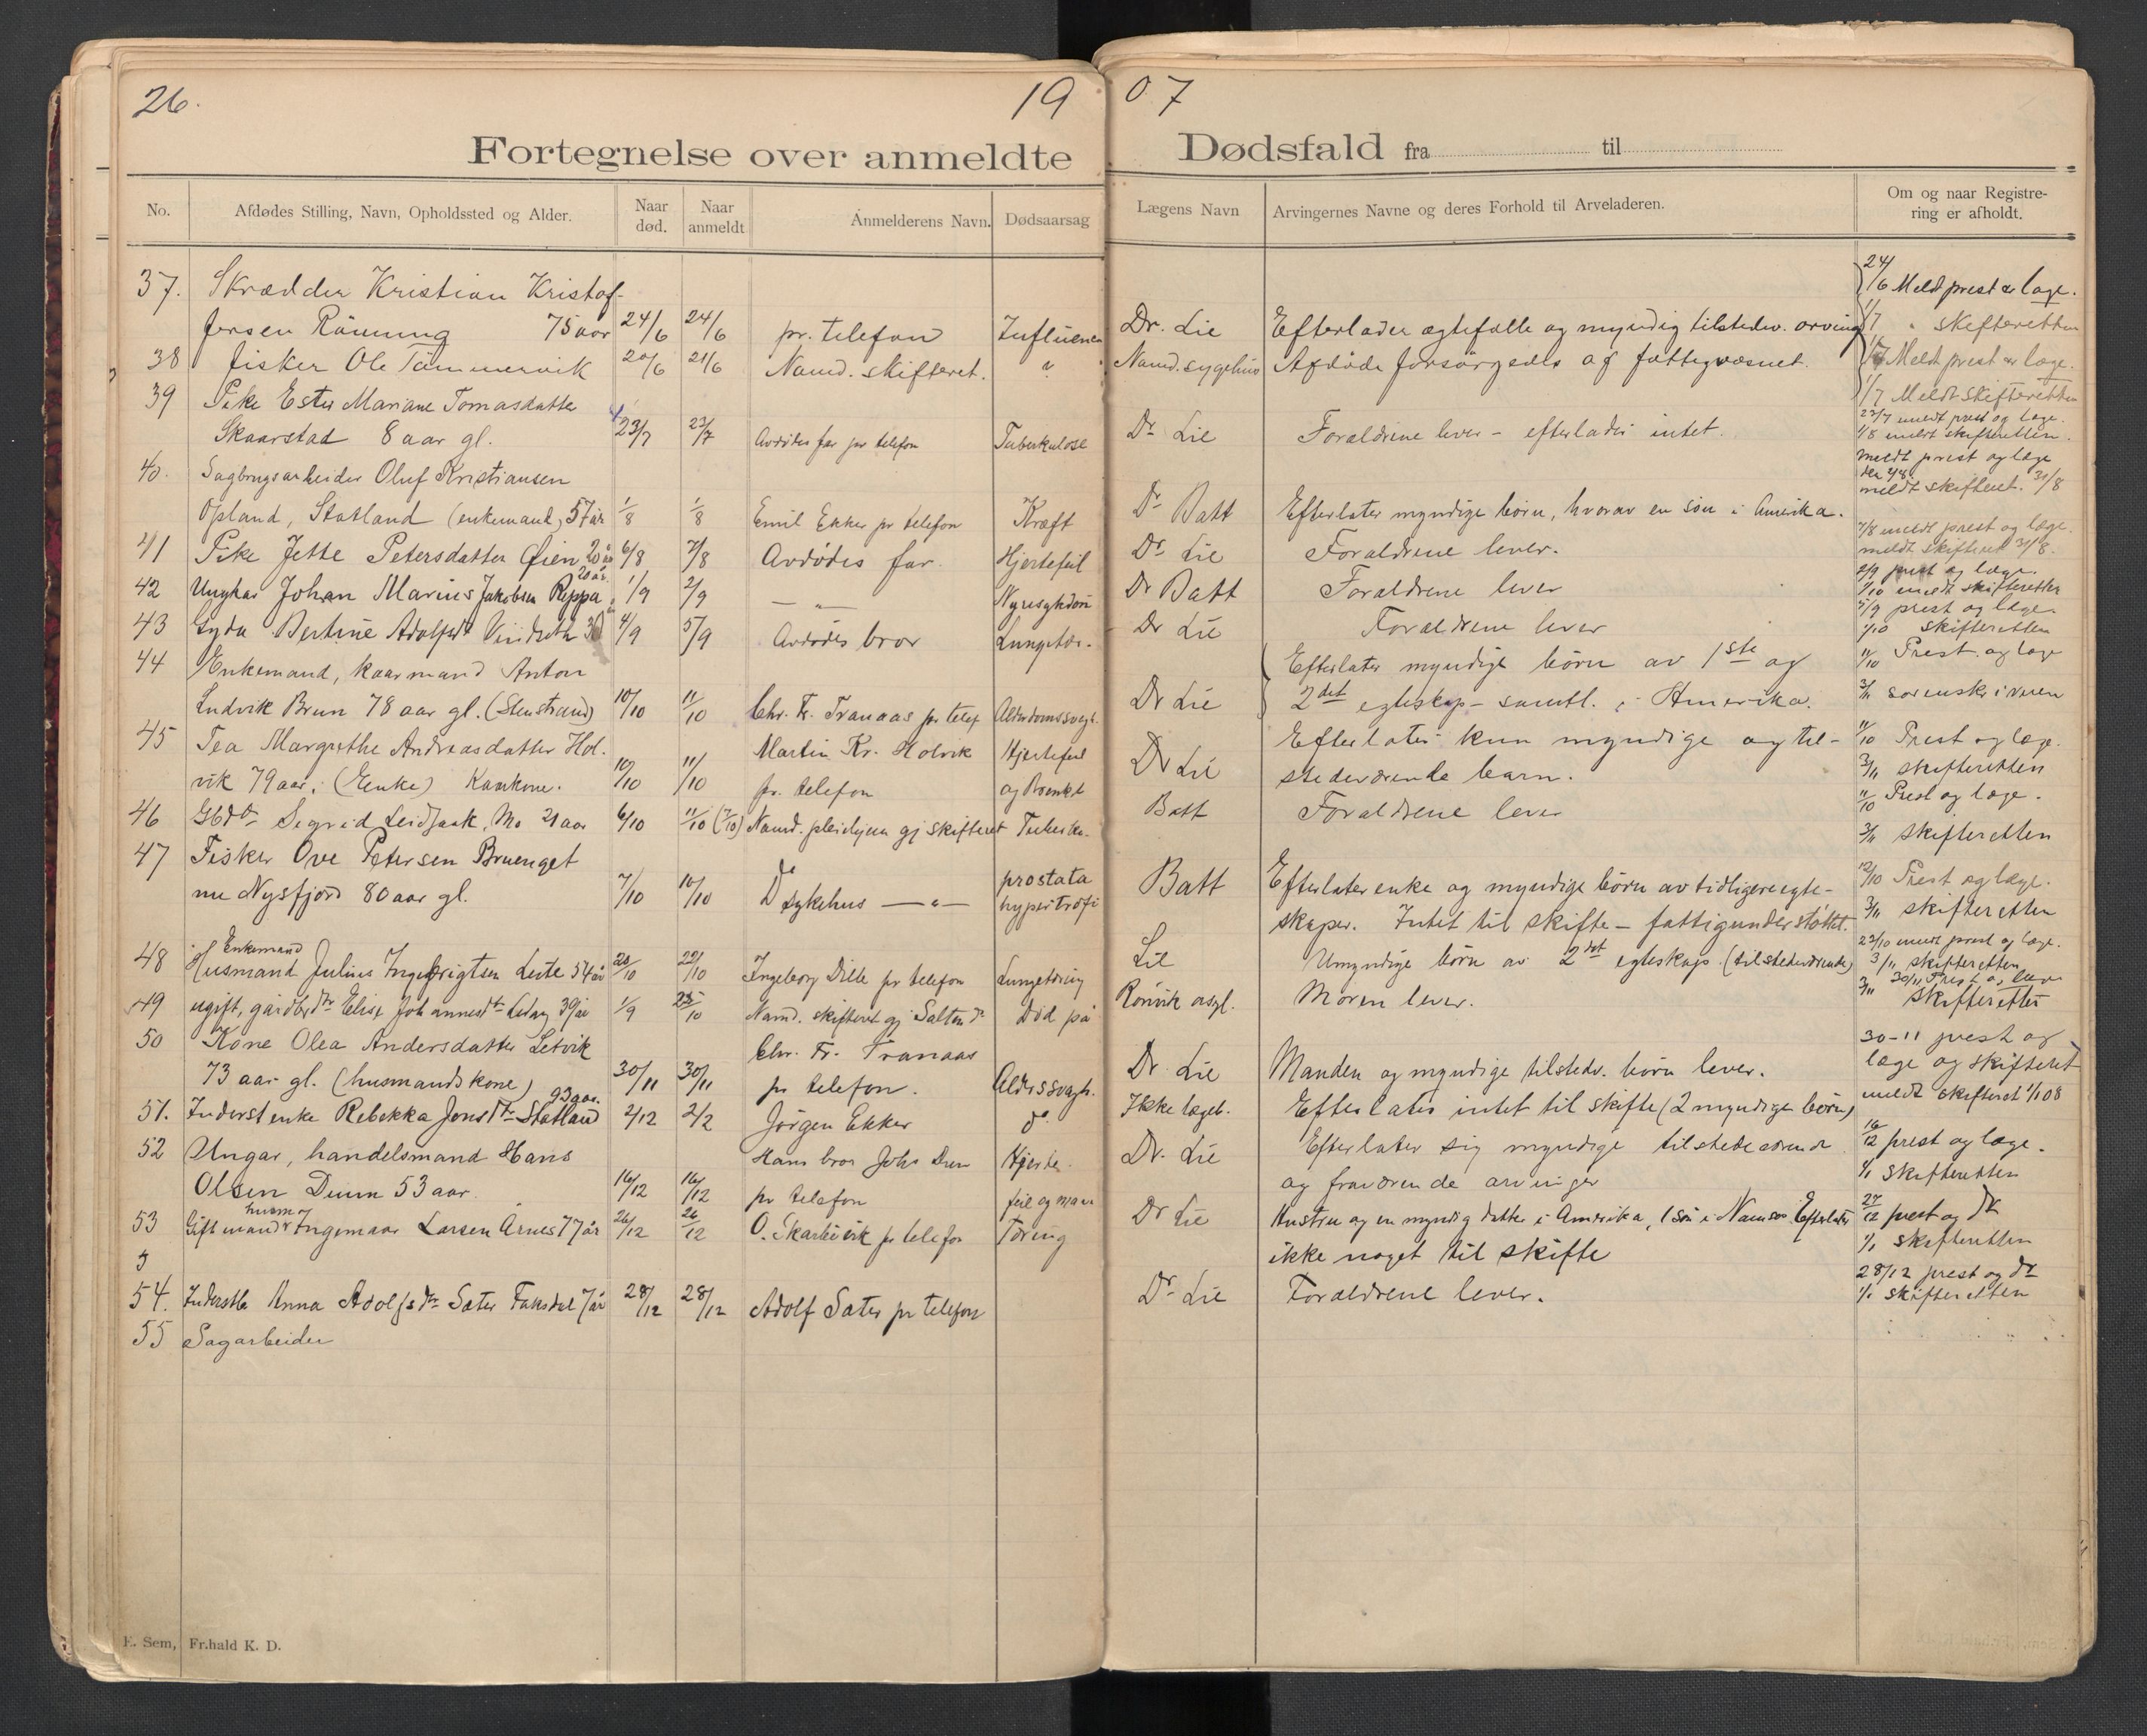 26.
19
07
Fortegnelse over anmeldte
Dødsfald fra til
No.
Afdødes Stilling, Navn, Opholdssted og Alder.
Naar død.
Naar anmeldt
Anmelderens Navn.
Dødsaarsag
Lægens Navn
Arvingernes Navne og deres Forhold til Arveladeren.
Om og naar Registre-
ring er afholdt.
37. Skrædder Kristian Kristof-
24/6 Meldt prest & læge.
fersen Rönning 75 aar 24/6 24/6 pr. telefon Influenza Dr. Lie Efterlader ægtefælle og myndig tilstedv. arving 1/7 " skifteretten
38 Fisker Ole Tømmervik 20/6 21/6 Namd. skifteret. " Namd. sygehus Afdöde forsörgedes af fattigvæsnet. Meldt prest & læge.
1/7 Meldt skifteretten
39 Pike Ester Mariane Tomasdatter
23/7 meldt prest og læge.
Skaarstad 8 aar gl. 23/7 23/7 Avdödes far pr telefon Tuberkulose Dr Lie Forældrene lever - efterlader intet. 1/8 meldt skifteretten.
40. Sagbrugsarbeider Oluf Kristiansen
meldt prest og læge
Opland, Statland (enkemand) 57 år 1/8 1/8 Emil Ekker pr telefon Kræft Dr Batt Efterlater myndige börn, hvorav en sön i Amerika. meldt skifteret. 31/8
41 Pike Jette Petersdatter Øien 20 år 6/8 7/8 Avdødes far. Hjertefeil Dr Lie Forældrene lever. 7/8 meldt prest og læge.
meldt skifteret 31/8.
42 Ungkar Johan Marius Jakobsen Reppa 20 år. 1/9 2/9 — " — Nyresykdom Dr Batt Forældrene lever 2/9 prest og læge.
1/10 meldt skifteretten
43 Gyda Bertine Adolfsdt 4/9 5/9 Avdödes bror Lungetær. Dr Lie Forældrene lever 5/9 prest og læge.
1/10 skifteretten
44 Enkemand, kaarmand Anton
Efterlater myndige börn av 1ste og
11/10 Prest og læge
Ludvik Brun 78 aar gl. (Stenstrand) 10/10 11/10 Chr. Fr. Tranaas pr telef Alderdomssvagh. Dr Lie 2det egteskap - samtl. i Amerika. 3/11 sorenskriveren
45 Tea Margrethe Andreasdatter Hol-
Martin Kr. Holvik Hjertefeil Efterlater kun myndige og til-
11/10 Prest og læge.
vik 79 aar. (Enke) Kaarkone. 10/10 11/10 pr. telefon og Dr Lie stedeværende barn. 3/11 skifteretten
46 Gbdtr Sigrid Leidsaak, Mo 21 aar 6/10 11/10 (7/10) Namd. pleiehjem gj skifteret Tuberku. Batt Forældrene lever 11/10 Prest og læge.
3/11 skifteretten
47 Fisker Ove Petersen Bruenget
nu Nysfjord 80 aar gl. 7/10 10/10 Do sykehus — " — prostata hypertrofi Batt Efterlater enke og myndige börn av tidligere egte-
12/10 Prest og læge.
skaper. Intet til skifte - fattigunderstöttet. 3/11 skifteretten
Enkemand
48 Husmand Julius Ingebrigtsen Leite 54 år 20/10 22/10 Ingeborg Dille pr telefon Lungetæring Lie Umyndige börn av 2det egteskap (tilstedeværende) 23/10 meldt prest og læge.
3/11 skifteretten
49 ugift, gårdbr dtr Elise Johannesdt 39 år 1/9 25/10 Namd. skifteret gj Salten do Död på Rönvik asyl. Moren lever. 3/11 skifteretten
50 Kone Olea Andersdatter Letvik
Chr. Fr. Tranaas
30-11 prest og
73 aar gl. (husmandskone) 30/11 30/11 pr telefon. Alderssvagh. Dr. Lie Manden og myndige tilstedv. börn lever. læge og skifteret
51. Inderst enke Rebekka Jonsdtr Statland 93 aar. 2/12 2/12 Jörgen Ekker do Ikke lægeb. Efterlater intet til skifte (2 myndige börn) meldt skifteret 1/1 08
52 Ungkar, handelsmand Hans
Hans bror Johs Duun Hjerte- Dr. Lie Efterlater sig myndige tilstedeværende
16/12 prest og læge.
Olsen Duun 53 aar. 16/12 16/12 pr telefon feil og mave og fraværende arvinger 1/1 skifteretten
husm.
53 Gift mand Ingemar Larsen Årnes 77 år 26/12 26/12 O. Skarbövik pr telefon Tæring Dr Lie Hustru og en myndig datter i Amerika, 1 sön i Namsos. Efterlater 27/12 prest og dr
ikke noget til skifte 1/1 skifteretten
5
54. Inderstb. Anna Adolfsdtr Sæter Faksdal 7 år 28/12 28/12 Adolf Sæter pr telefon Dr Lie Forældrene lever. 28/12 prest og dr
1/1 skifteretten
55 Sagarbeider
E. Sem, Fr.hald K. D.